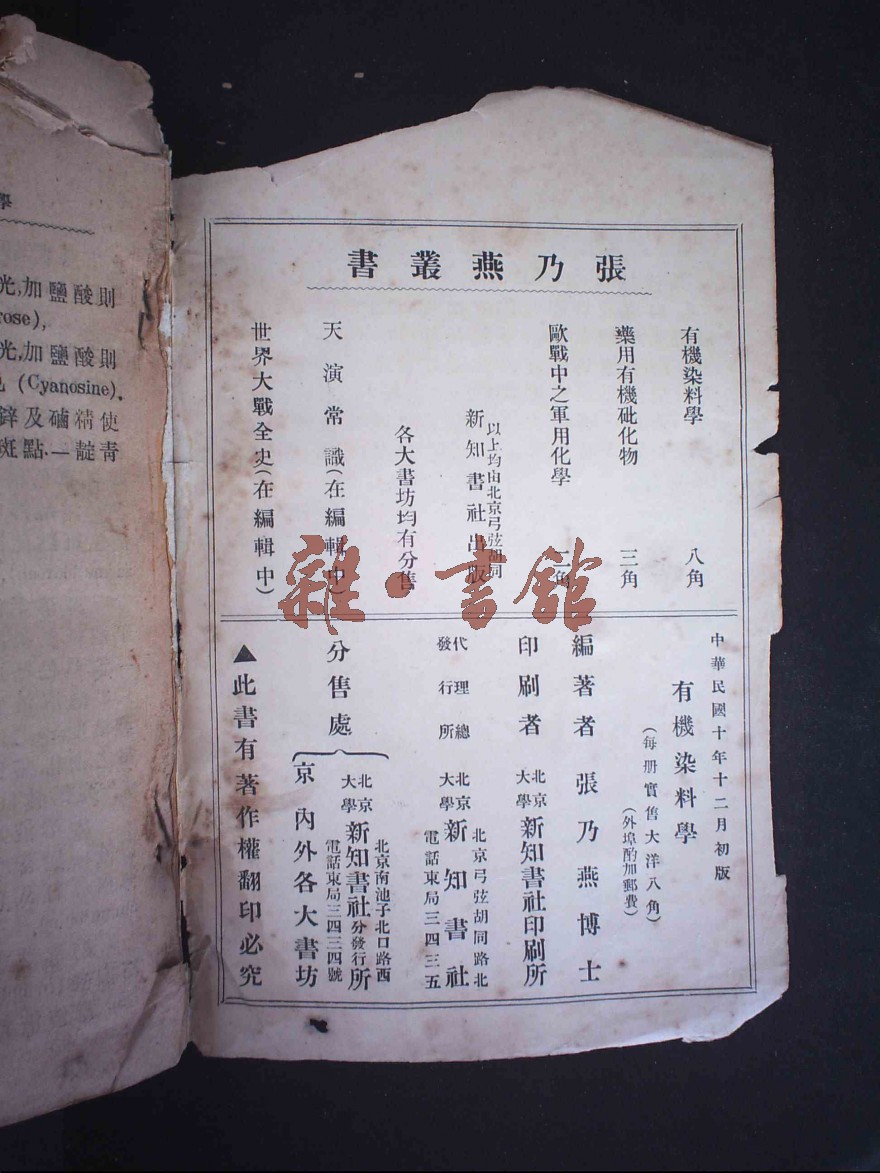 張乃燕叢書
有機染料學 八角
藥用有機砒化物 三角
歐戰中之軍用化學 二角
以上均由北京弓弦胡同
新知書社出版
各大書坊均有分售
天演常識(在編輯中)
世界大戰全史(在編輯中)
中華民國十年十二月初版
有機染料學
(每册實售大洋八角)
(外埠酌加郵費)
編著者 張乃燕博士
印刷者 北京大學 新知書社印刷所
代理總發行所 北京大學 新知書社
北京弓弦胡同路北
電話東局三四三五
分售處
北京大學 新知書社分發行所
北京南池子北口路西
電話東局三四三四號
京內外各大書坊
▲此書有著作權翻印必究
雜·書館
學
光,加鹽酸則
rose),
光,加鹽酸則
(Cyanosine).
鋅及硇精使
斑點.—靛青